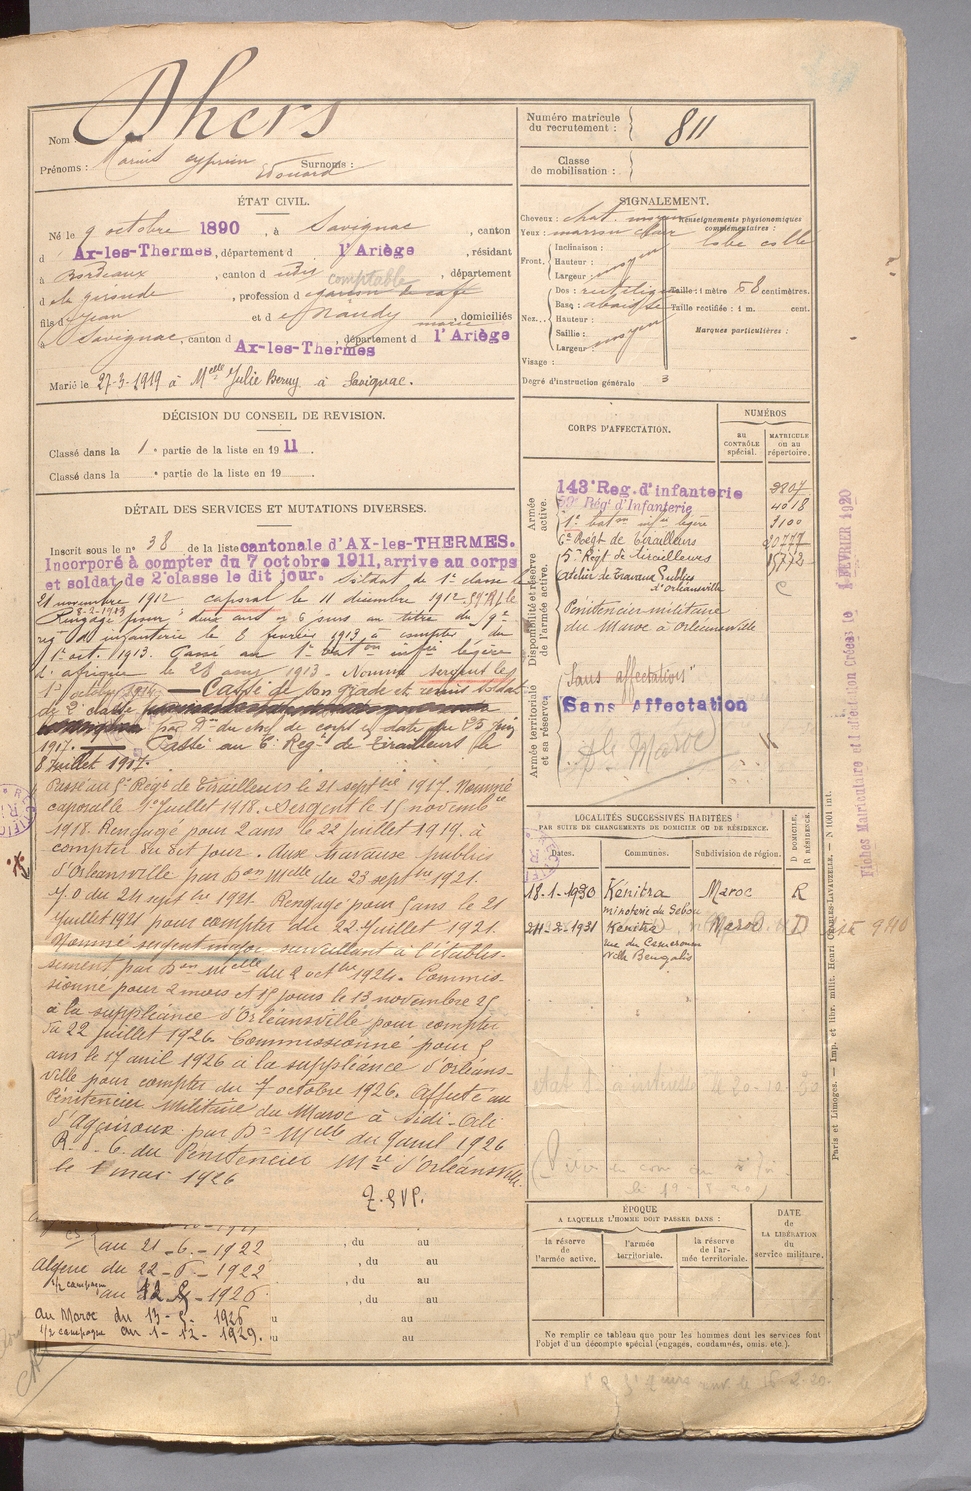 Nom : Dhers
Prénoms : Marius Cyprien Edouard Surnoms :
ÉTAT CIVIL.
Né le 9 octobre 1890, à Savignac, canton
d' Ax-les-Thermes, département d l'Ariège, résidant
à Bordeaux, canton d udis, département
d e la gironde, profession de garçon de café comptable
fils de Jean et d e Naudy Marie, domiciliés
à Savignac, canton d Ax-les-Thermes, département d l'Ariège
Marié le 27-3-1919 à Melle Julie Beruy à Savignac.
DÉCISION DU CONSEIL DE REVISION.
Classé dans la 1e partie de la liste en 1911.
Classé dans la e partie de la liste en 19 .
DÉTAIL DES SERVICES ET MUTATIONS DIVERSES.
Inscrit sous le n° 38 de la liste cantonale d'AX-les-THERMES.
Incorporé à compter du 7 octobre 1911, arrive au corps
et soldat de 2e classe le dit jour. Soldat de 1e classe le
21 novembre 1912, caporal le 11 décembre 1912
8-2-1913
Rengagé pour deux ans 6 mois au titre du 9e
reg d'infanterie le 8 février 1913 à compter du
1er oct. 1913. Passé au 1er baton infie legère
d'afrique le 28 1913 - Nommé sergent le
1er octobre 1914 — Cassé de son grade et remis soldat
de 2e classe
par Don du chef de corps en date du 25 Juin
1917. — Passé au 6e Regt de Tirailleurs le
8 Juillet 1917.
Passé au 5e Régt de Tirailleurs le 21 septbre 1917. Nommé
caporal le 1er Juillet 1918. Sergent le 15 novembre
1918. Rengagé pour 2 ans le 22 Juillet 1919. à
compter du dit jour. Aux travaux publics
d'Orléansville par Don Melle du 23 septbre 1921.
J.O du 24 septbre 1921. Rengagé pour 5 ans le 21
Juillet 1921 pour compter du 22 Juillet 1921.
Nommé sergent major surveillant à l'établis-
sement par Don Melle du 2 octbre 1924. Commis-
sionné pour 2 mois et 15 jours le 13 novembre 25
à la suppléance d'Orléansville pour compter
du 22 Juillet 1926. Commissionné pour 5
ans le 17 avril 1926 à la suppléance d'Orléans-
ville pour compter du 7 octobre 1926. Affecté au
Pénitencier Militaire du Maroc à Sidi-Ali
d'Azemour par Don Melle du 9 avril 1926
R. d. C. du Pénitencier Mre d'Orléansville
le 1 mai 1926
T.SVP.
au 21-6-1922
Algérie du 22-6-1922
1/2 campagne au 12-5-1926
au Maroc du 13-5-1926
1/2 campagne au 1-12-1929.
, du au
, du au
, du au
, du au
au
au
Numéro matricule
du recrutement : 811
Classe
de mobilisation :
SIGNALEMENT.
Cheveux : chat. moyen
Yeux : marron clair
Renseignements physionomiques
complémentaires :
lobe collé
Front, Inclinaison :
Hauteur :
Largeur : moyen
Nez.. Dos : rectiligne
Base : abaissée
Hauteur :
Saillie : moyen
Largeur :
Taille : 1 mètre 58 centimètres.
Taille rectifiée : 1 m. cent.
Marques particulières :
Visage :
Degré d'instruction générale 3
CORPS D'AFFECTATION.
NUMÉROS
au CONTRÔLE spécial.
MATRICULE ou au répertoire.
Armée active.
143e Reg. d'infanterie 3807
59e Régt d'Infanterie 4018
1er baton infie légère 9100
6e Régt de Tirailleurs 20777
5e Régt de Tirailleurs 15772
Disponibilité et réserve de l'armée active.
Atelier de Travaux Publics
d'Orléansville
Pénitencier militaire
du Maroc à Orléansville
Armée territoriale et sa réserve
"Sans affectation"
Sans Affectation
Maroc
LOCALITÉS SUCCESSIVES HABITÉES
PAR SUITE DE CHANGEMENTS DE DOMICILE OU DE RÉSIDENCE.
D DOMICILE, R RÉSIDENCE.
Dates. Communes. Subdivision de région.
18-1-1930 Kénitra Maroc R
minoterie du Sebou
24-2-1931 Kenitra Maroc D
rue du Cameroun
Villa Bengalis
ÉPOQUE
A LAQUELLE L'HOMME DOIT PASSER DANS :
la réserve de l'armée active.
l'armée territoriale.
la réserve de l'armée territoriale.
DATE de LA LIBÉRATION du service militaire.
Ne remplir ce tableau que pour les hommes dont les services font
l'objet d'un décompte spécial (engagés, condamnés, omis. etc.).
Paris et Limoges. — Imp. et libr. milit. Henri CHARLES-LAVAUZELLE. — N 1001 int.
Fiches Matriculaire et d'affectation Créées le FEVRIER 1920